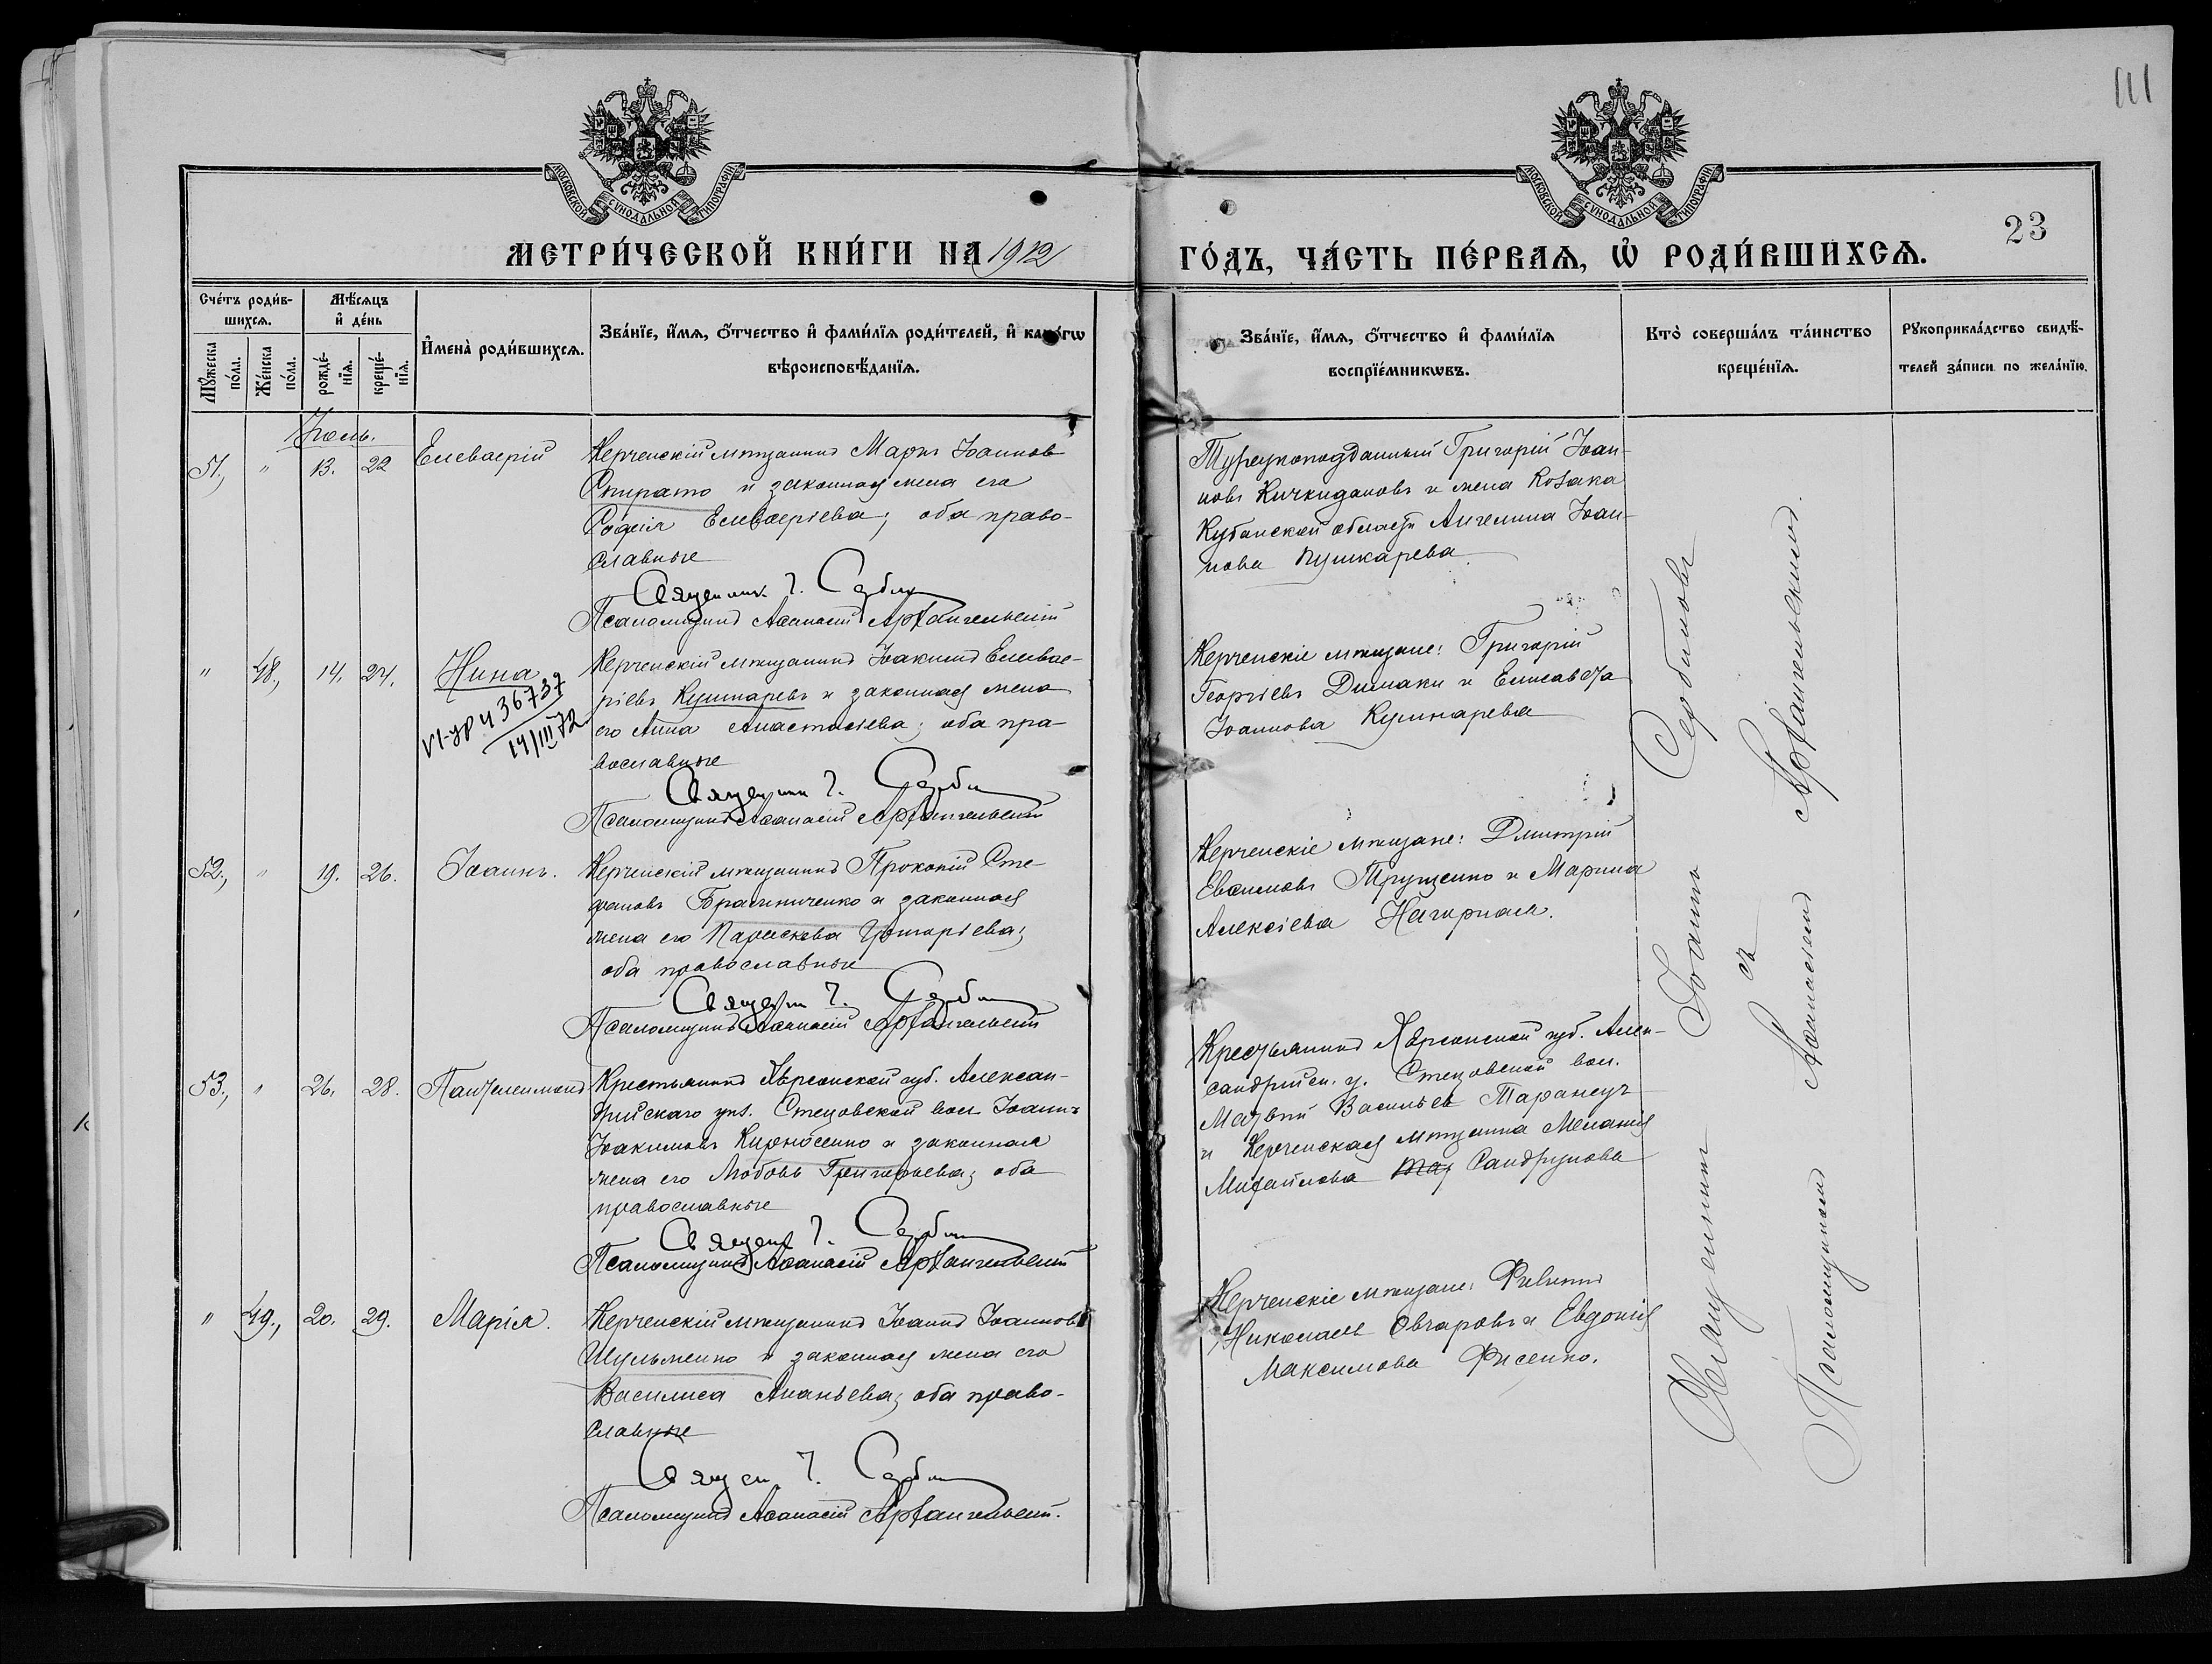 111
МОСКОВСКОЙ СѴНОДАЛЬНОЙ ТИПОГРАФІИ
МОСКОВСКОЙ СѴНОДАЛЬНОЙ ТИПОГРАФІИ
23
МЕТРИ́ЧЕСКОЙ КНИ́ГИ НА 1912
ГО́ДЪ, ЧА́СТЬ ПЕ́РВАѦ, Ѡ РОДИ́ВШИХСѦ.
Сче́тъ роди́в-
шихсѧ.
Мꙋ́жеска по́ла.
Же́нска по́ла.
Мѣ́сѧцъ
и҆ де́нь
рожде́-
нїѧ.
креще́-
нїѧ.
И҆мена̀ роди́вшихсѧ.
Зва́нїе, и҆́мѧ, ѻ҆́тчество и҆ фами́лїѧ роди́телей, и҆ како́гѡ
вѣроисповѣ́данїѧ.
Зва́нїе, и҆́мѧ, ѻ҆́тчество и҆ фами́лїѧ
воспрїе́мникѡвъ.
Кто̀ соверша́лъ та́инство
креще́нїѧ.
Рꙋкоприкла́дство свидѣ́-
телей за́писи по жела́нїю.
Іюль.
51., " 13. 22 Елевѳерій
Керченскій мѣщанинъ Маркъ Іоанновъ
Спирато и законная жена его
Софія Елевѳеріева; оба право-
славные
Священник І. Сербин
Псаломщикъ Аѳанасій Архангельскій
Турецкоподданный Григорій Іоан-
новъ Кичкидановъ и жена козака
Кубанской области Ангелина Іоан-
нова Пушкарева
" 48., 14. 24. Нина
36737
14/III 72
Керченскій мѣщанинъ Іоакимъ Елевѳе-
ріевъ Кушнаревъ и законная жена
его Анна Анастасіева; оба пра-
вославные
Священник І. Сербин
Псаломщикъ Аѳанасій Архангельскій
Керченскіе мѣщане: Григорій
Георгіевъ Димаки и Елисавета
Іоаннова Кушнарева
52., " 19. 26. Іоаннъ.
Керченскій мѣщанинъ Прокопій Сте-
фановъ Бражниченко и законная
жена его Параскева Григоріева;
оба православные
Священ І. Сербин
Псаломщикъ Аѳанасій Архангельскій
Керченскіе мѣщане: Димитрій
Евѳимовъ Трущенко и Марина
Алексіева Нагорная.
53., " 26. 28. Пантелеимонъ
Крестьянинъ Херсонской губ. Алексан-
дрійскаго уѣз. Стецовской вол Іоаннъ
Іоакимовъ Кирносенко и законная
жена его Любовь Григорьева; оба
православные
Священ І. Сербин
Псаломщикъ Аѳанасій Архангельскій
Крестьянинъ Херсонской губ. Алек-
сандрійск. у. Стецовской вол.
Матвій Васильев Таранецъ
и Керченская мѣщанка Меланія
Михайлова Сандрунова
" 49., 20. 29. Марія.
Керченскій мѣщанинъ Іоаннъ Іоанновъ
Шульженко и законная жена его
Василиса Ананьева; оба право-
славные
Священ І. Сербин
Псаломщикъ Аѳанасій Архангельскій.
Керченскіе мѣщане: Филиппъ
Николаевъ Овчаровъ и Евдокія
Максимова Фисенко.
Священникъ Іоаннъ Сербиновъ
съ
Псаломщикомъ Аѳанасіемъ Архангельскимъ.